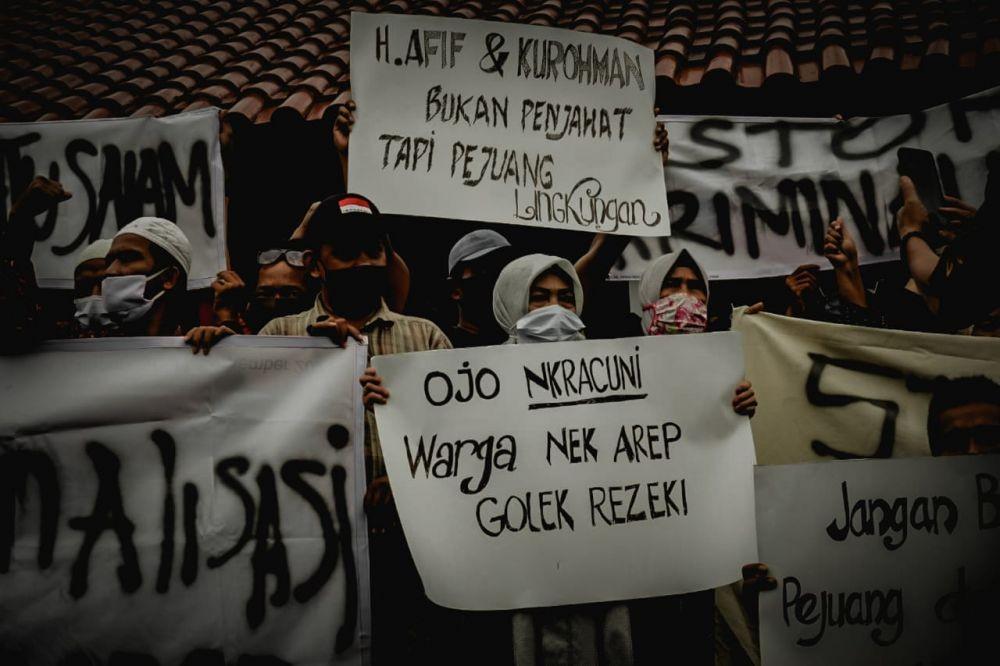 H.AFIF & KUROHMAN
BUKAN PENJAHAT
TAPI PEJUANG
LINGKUNGAN
SALAM
STOP
KRIMINAL
OJO NKRACUNI
Warga NEK AREP
GOLEK REZEKI
MALISASI
Jangan
Pejuang